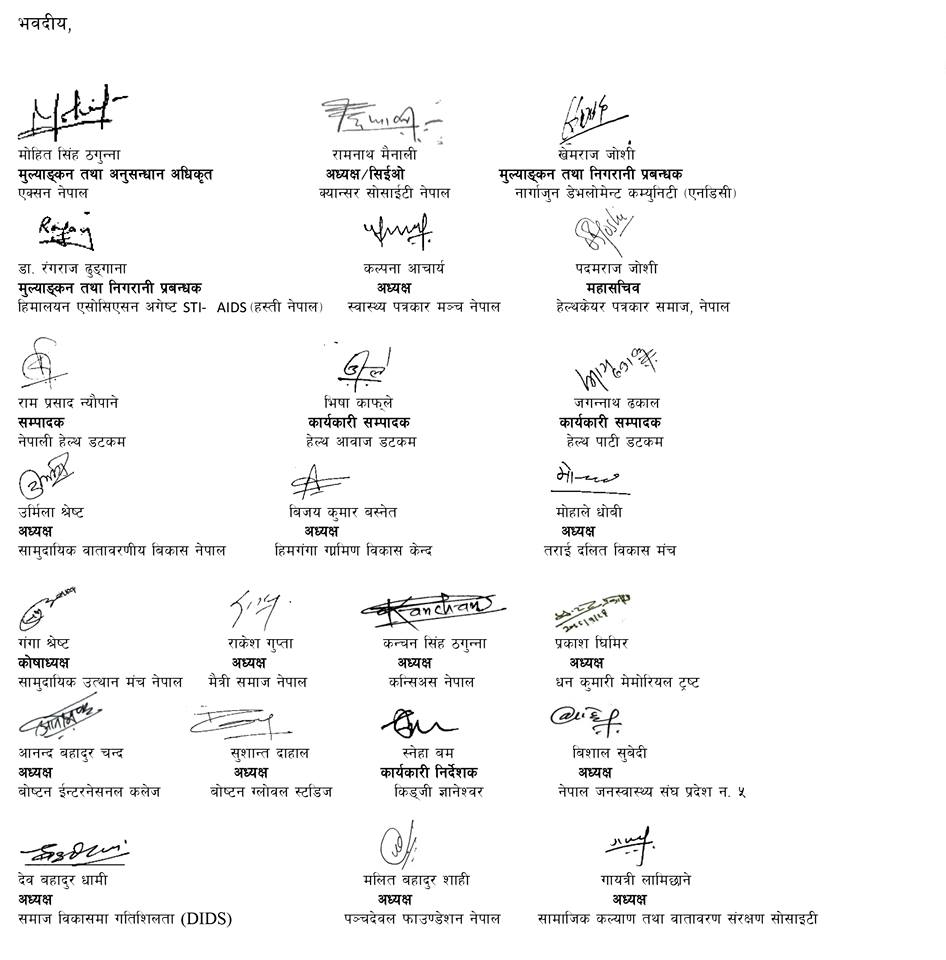 भवदीय,
Mohit
मोहित सिंह ठगुन्ना रामनाथ मैनाली खेमराज जोशी
मुल्याङ्कन तथा अनुसन्धान अधिकृत अध्यक्ष/सिईओ मुल्याङ्कन तथा निगरानी प्रबन्धक
एक्सन नेपाल क्यान्सर सोसाईटी नेपाल नार्गाजुन डेभलोमेन्ट कम्युनिटी (एनडिसी)
डा. रंगराज ढुङ्गाना कल्पना आचार्य पदमराज जोशी
मुल्याङ्कन तथा निगरानी प्रबन्धक अध्यक्ष महासचिव
हिमालयन एसोसिएसन अगेष्ट STI- AIDS (हस्ती नेपाल) स्वास्थ्य पत्रकार मञ्च नेपाल हेल्थकेयर पत्रकार समाज, नेपाल
राम प्रसाद न्यौपाने भिषा काफ्ले जगन्नाथ ढकाल
सम्पादक कार्यकारी सम्पादक कार्यकारी सम्पादक
नेपाली हेल्थ डटकम हेल्थ आवाज डटकम हेल्थ पाटी डटकम
उर्मिला श्रेष्ट बिजय कुमार बस्नेत मोहाले धोबी
अध्यक्ष अध्यक्ष अध्यक्ष
सामुदायिक वातावरणीय बिकास नेपाल हिमगंगा ग्रामिण विकास केन्द तराई दलित विकास मंच
Kanchan
गंगा श्रेष्ट राकेश गुप्ता कन्चन सिंह ठगुन्ना प्रकाश घिमिर
कोषाध्यक्ष अध्यक्ष अध्यक्ष अध्यक्ष
सामुदायिक उत्थान मंच नेपाल मैत्री समाज नेपाल कन्सिअस नेपाल धन कुमारी मेमोरियल ट्रष्ट
आनन्द बहादुर चन्द सुशान्त दाहाल स्नेहा बम बिशाल सुवेदी
अध्यक्ष अध्यक्ष कार्यकारी निर्देशक अध्यक्ष
बोष्टन ईन्टरनेसनल कलेज बोष्टन ग्लोवल स्टडिज किड्जी ज्ञानेश्वर नेपाल जनस्वास्थ्य संघ प्रदेश न. ५
देव बहादुर धामी मलित बहादुर शाही गायत्री लामिछाने
अध्यक्ष अध्यक्ष अध्यक्ष
समाज विकासमा गतिशिलता (DIDS) पञ्चदेवल फाउण्डेशन नेपाल सामाजिक कल्याण तथा वातावरण संरक्षण सोसाइटी